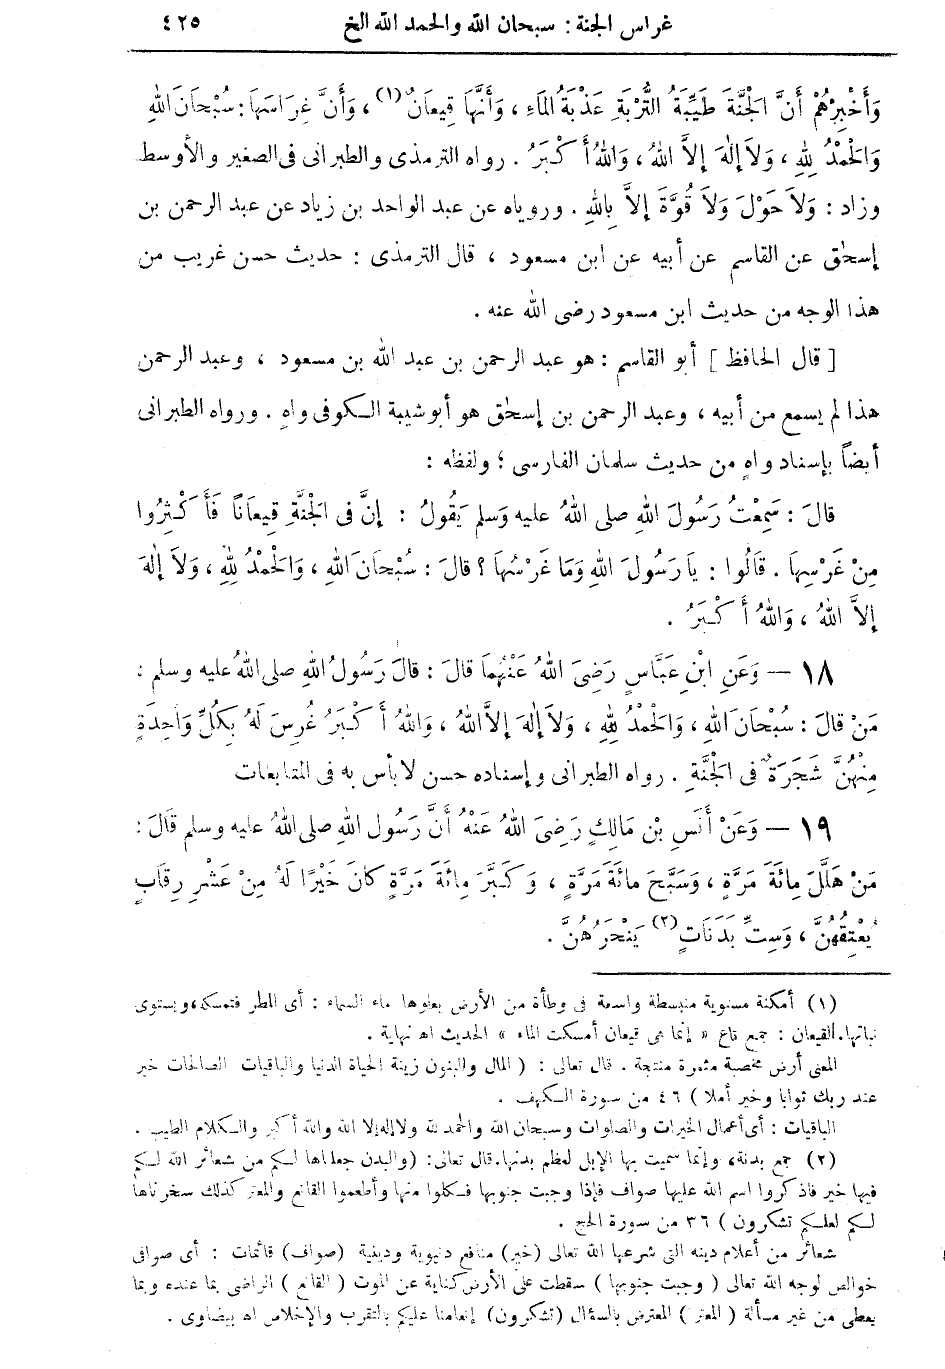 غراس الجنة : سبحان الله والحمد لله الخ ٤٢٥
وَأَخْبِرْهُمْ أَنَّ الْجَنَّةَ طَيِّبَةُ التُّرْبَةِ عَذْبَةُ الْمَاءِ ، وَأَنَّهَا قِيعَانٌ (١) ، وَأَنَّ غِرَاسَهَا : سُبْحَانَ اللهِ
وَالْحَمْدُ لِلهِ ، وَلاَ إِلٰهَ إِلاَّ اللهُ ، وَاللهُ أَكْبَرُ . رواه الترمذى والطبرانى فى الصغير والأوسط
وزاد : وَلاَ حَوْلَ وَلاَ قُوَّةَ إِلاَّ بِاللهِ . وروياه عن عبد الواحد بن زياد عن عبد الرحمن بن
إسحٰق عن القاسم عن أبيه عن ابن مسعود ، قال الترمذى : حديث حسن غريب من
هذا الوجه من حديث ابن مسعود رضى الله عنه .
[ قال الحافظ ] أبو القاسم : هو عبد الرحمن بن عبد الله بن مسعود ، وعبد الرحمن
هذا لم يسمع من أبيه ، وعبد الرحمن بن إسحٰق هو أبو شيبة الكوفى واهٍ . ورواه الطبرانى
أيضاً بإسناد واهٍ من حديث سلمان الفارسى ؛ ولفظه :
قالَ : سَمِعْتُ رَسُولَ اللهِ صلى اللهُ عليه وَسلم يَقُولُ : إِنَّ فى الْجَنَّةِ قِيعَاناً فَأَكْثِرُوا
مِنْ غَرْسِهَا . قَالُوا : يَا رَسُولَ اللهِ وَمَا غَرْسُهَا ؟ قالَ : سُبْحَانَ اللهِ ، وَالْحَمْدُ لِلهِ ، وَلاَ إِلٰهَ
إِلاَّ اللهُ ، وَاللهُ أَكْبَرُ .
١٨ — وَعَنِ ابْنِ عَبَّاسٍ رَضِىَ اللهُ عَنْهُمَا قالَ : قالَ رَسُولُ اللهِ صلى اللهُ عليه وسلم :
مَنْ قالَ : سُبْحَانَ اللهِ ، وَالْحَمْدُ لِلهِ ، وَلاَ إِلٰهَ إِلاَّ اللهُ ، وَاللهُ أَكْبَرُ غُرِسَ لَهُ بِكُلِّ وَاحِدَةٍ
مِنْهُنَّ شَجَرَةٌ فى الْجَنَّةِ . رواه الطبرانى وإسناده حسن لا بأس به فى المتابعات
١٩ — وَعَنْ أَنَسِ بْنِ مَالِكٍ رَضِىَ اللهُ عَنْهُ أَنَّ رَسُول اللهِ صلى اللهُ عليه وسلم قَالَ :
مَنْ هَلَّلَ مِائَةَ مَرَّةٍ ، وَسَبَّحَ مائَةَ مَرَّةٍ ، وَكَبَّرَ مِائَةَ مَرَّةٍ كانَ خَيْرًا لَهُ مِنْ عَشْرِ رِقَابٍ
يُعْتِقُهُنَّ ، وَسِتِّ بَدَنَاتٍ (٢) يَنْحَرُهُنَّ .
(١) أمكنة مستوية منبسطة واسعة فى وطأة من الأرض يعلوها ماء السماء : أى المطر فتمسكه ، ويستوى
نباتها . القيعان : جمع قاع « إنما هى قيعان أمسكت الماء » الحديث اه نهاية .
المعنى أرض مخصبة مثمرة منتجة . قال تعالى : ( المال والبنون زينة الحياة الدنيا والباقيات الصالحات خير
عند ربك ثوابا وخير أملا ) ٤٦ من سورة الكهف .
الباقيات : أى أعمال الخيرات والصلوات وسبحان الله والحمد لله ولا إله إلا الله والله أكبر والكلام الطيب .
(٢) جمع بدنة ، وإنما سميت بها الإبل لعظم بدنها . قال تعالى : (والبدن جعلناها لكم من شعائر الله لكم
فيها خير فاذكروا اسم الله عليها صواف فإذا وجبت جنوبها فكلوا منها وأطعموا القانع والمعتر كذلك سخرناها
لكم لعلكم تشكرون ) ٣٦ من سورة الحج .
شعائر من أعلام دينه التى شرعها الله تعالى (خير) منافع دنيوية ودينية (صواف) قائمات : أى صوافى
خوالص لوجه الله تعالى ( وجبت جنوبها ) سقطت على الأرض كناية عن الموت ( القانع ) الراضى بما عنده وبما
يعطى من غير مسألة ( المعتر ) المعترض بالسؤال (تشكرون) إنعامنا عليكم بالتقرب والإخلاص اه بيضاوى .